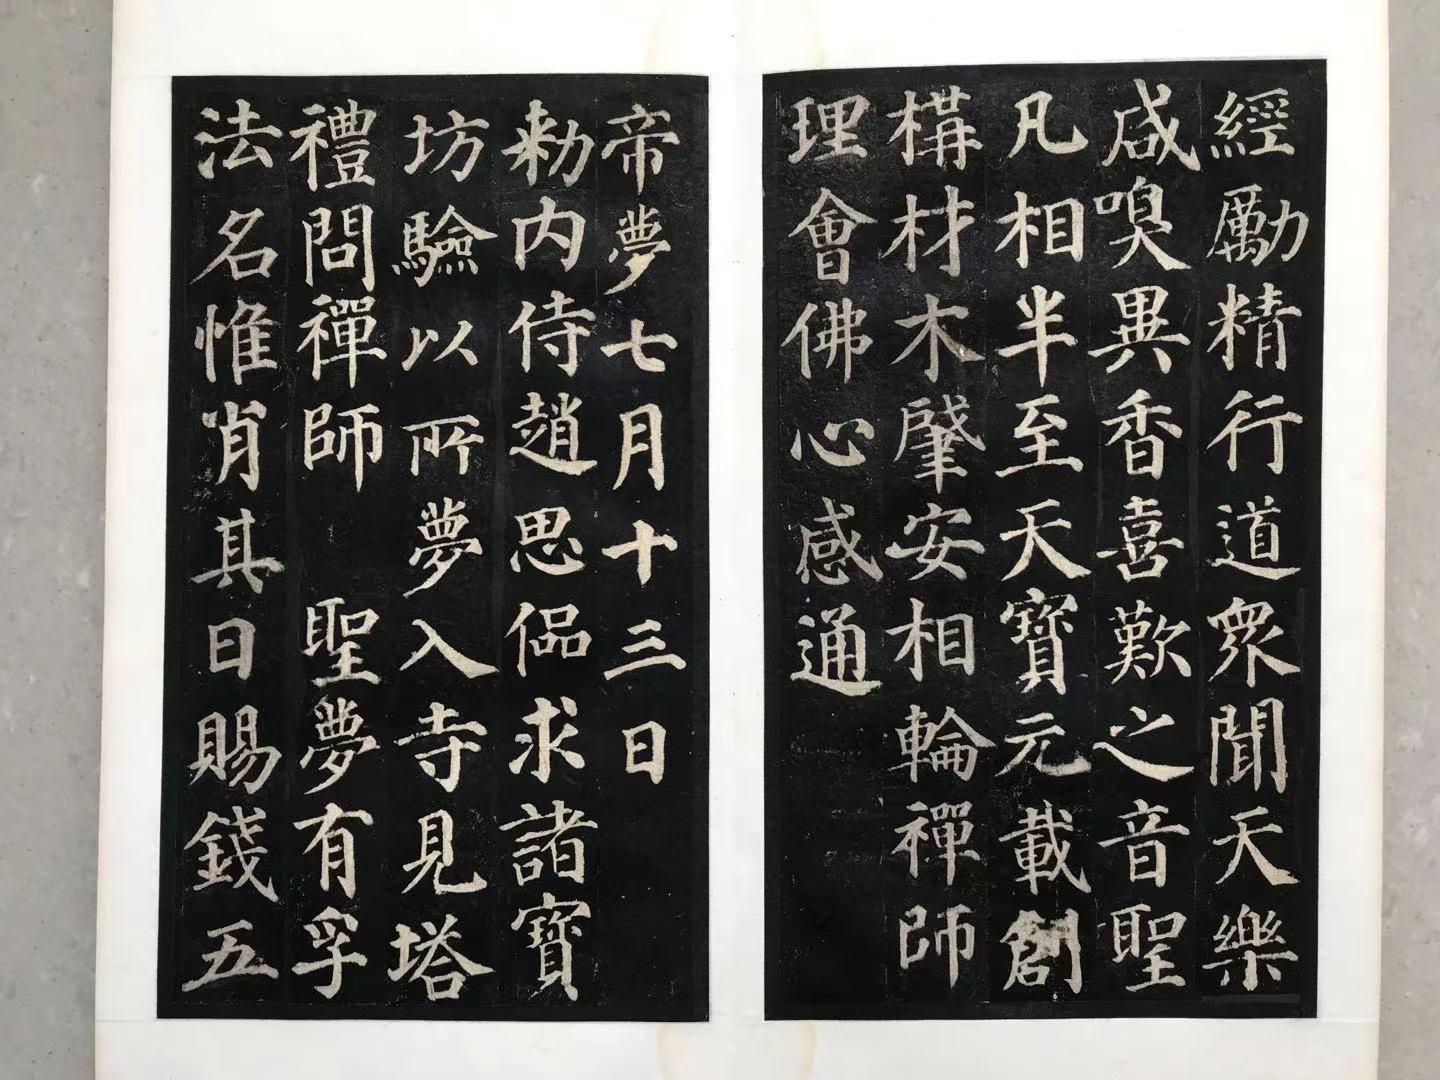 經勵精行道衆聞天樂
咸嗅異香喜歎之音聖
凡相半至天寶元載創
構材木肇安相輪禪師
理會佛心感通
帝夢七月十三日
勅内侍趙思偘求諸寶
坊驗以所夢入寺見塔
禮問禪師　聖夢有孚
法名惟肖其日賜錢五